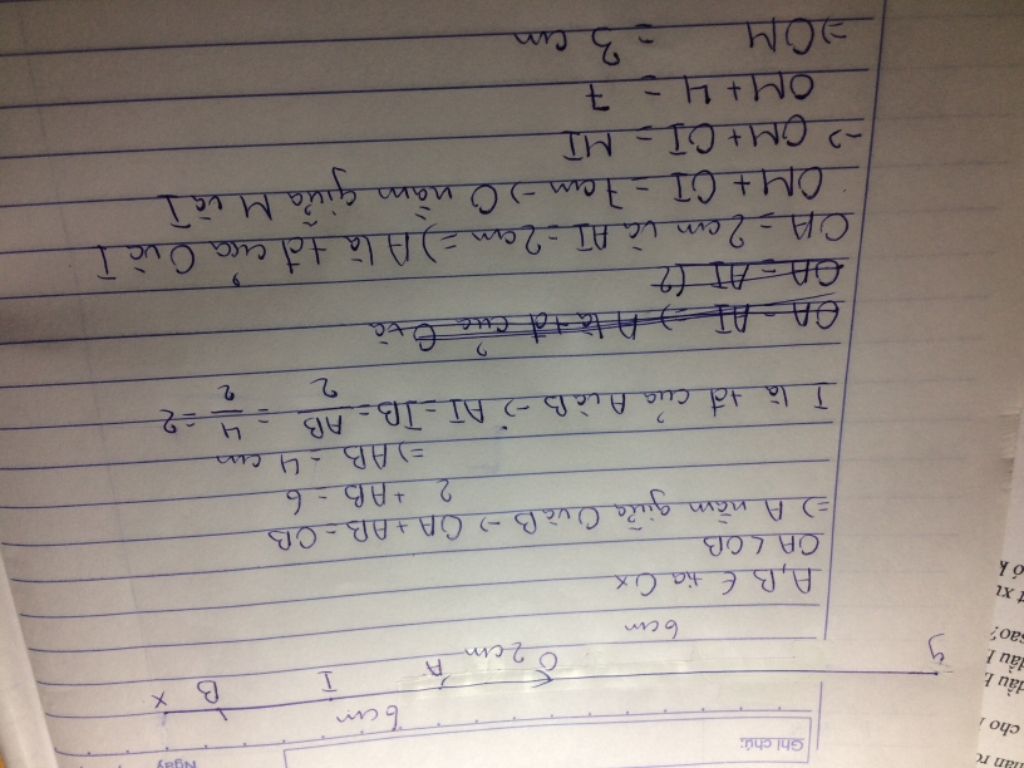 Ngày
Ghi chú:
6cm
y O 2cm A I B x
6cm
A, B ∈ tia Ox
OA < OB
=> A nằm giữa O và B -> OA + AB = OB
2 + AB = 6
=> AB = 4 cm
I là tđ của A và B -> AI = IB = AB/2 = 4/2 = 2
OA = AI => A là tđ của O và
OA = AI (2
OA = 2cm và AI = 2cm => A là tđ của O và I
OM + OI = 7cm -> O nằm giữa M và I
-> OM + OI = MI
OM + 4 = 7
=> OM = 3 cm
cho
đầu
đầu
sao?